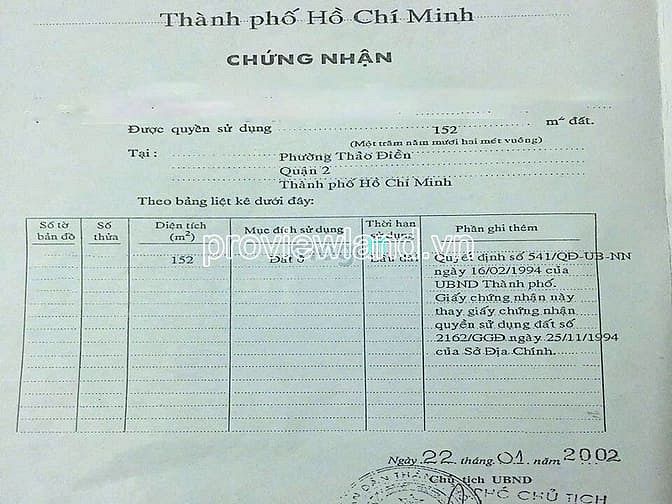 Thành phố Hồ Chí Minh
CHỨNG NHẬN
Được quyền sử dụng 152 m² đất.
(Một trăm năm mươi hai mét vuông)
Tại : Phường Thảo Điền
Quận 2
Thành phố Hồ Chí Minh
Theo bảng liệt kê dưới đây:
Số tờ bản đồ Số thửa Diện tích (m²) Mục đích sử dụng Thời hạn sử dụng Phần ghi thêm
152 Đất ở Lâu dài Quyết định số 541/QĐ-UB-NN
ngày 16/02/1994 của
UBND Thành phố.
Giấy chứng nhận này
thay giấy chứng nhận
quyền sử dụng đất số
2162/GGĐ ngày 25/11/1994
của Sở Địa Chính.
proviewland.vn
Ngày 22 tháng 01 năm 2002
Chủ tịch UBND
PHÓ CHỦ TỊCH